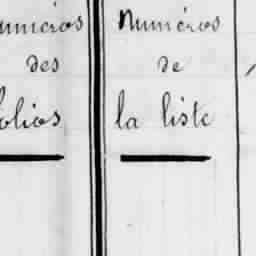 numéros
des
folios
numéros
de
la liste